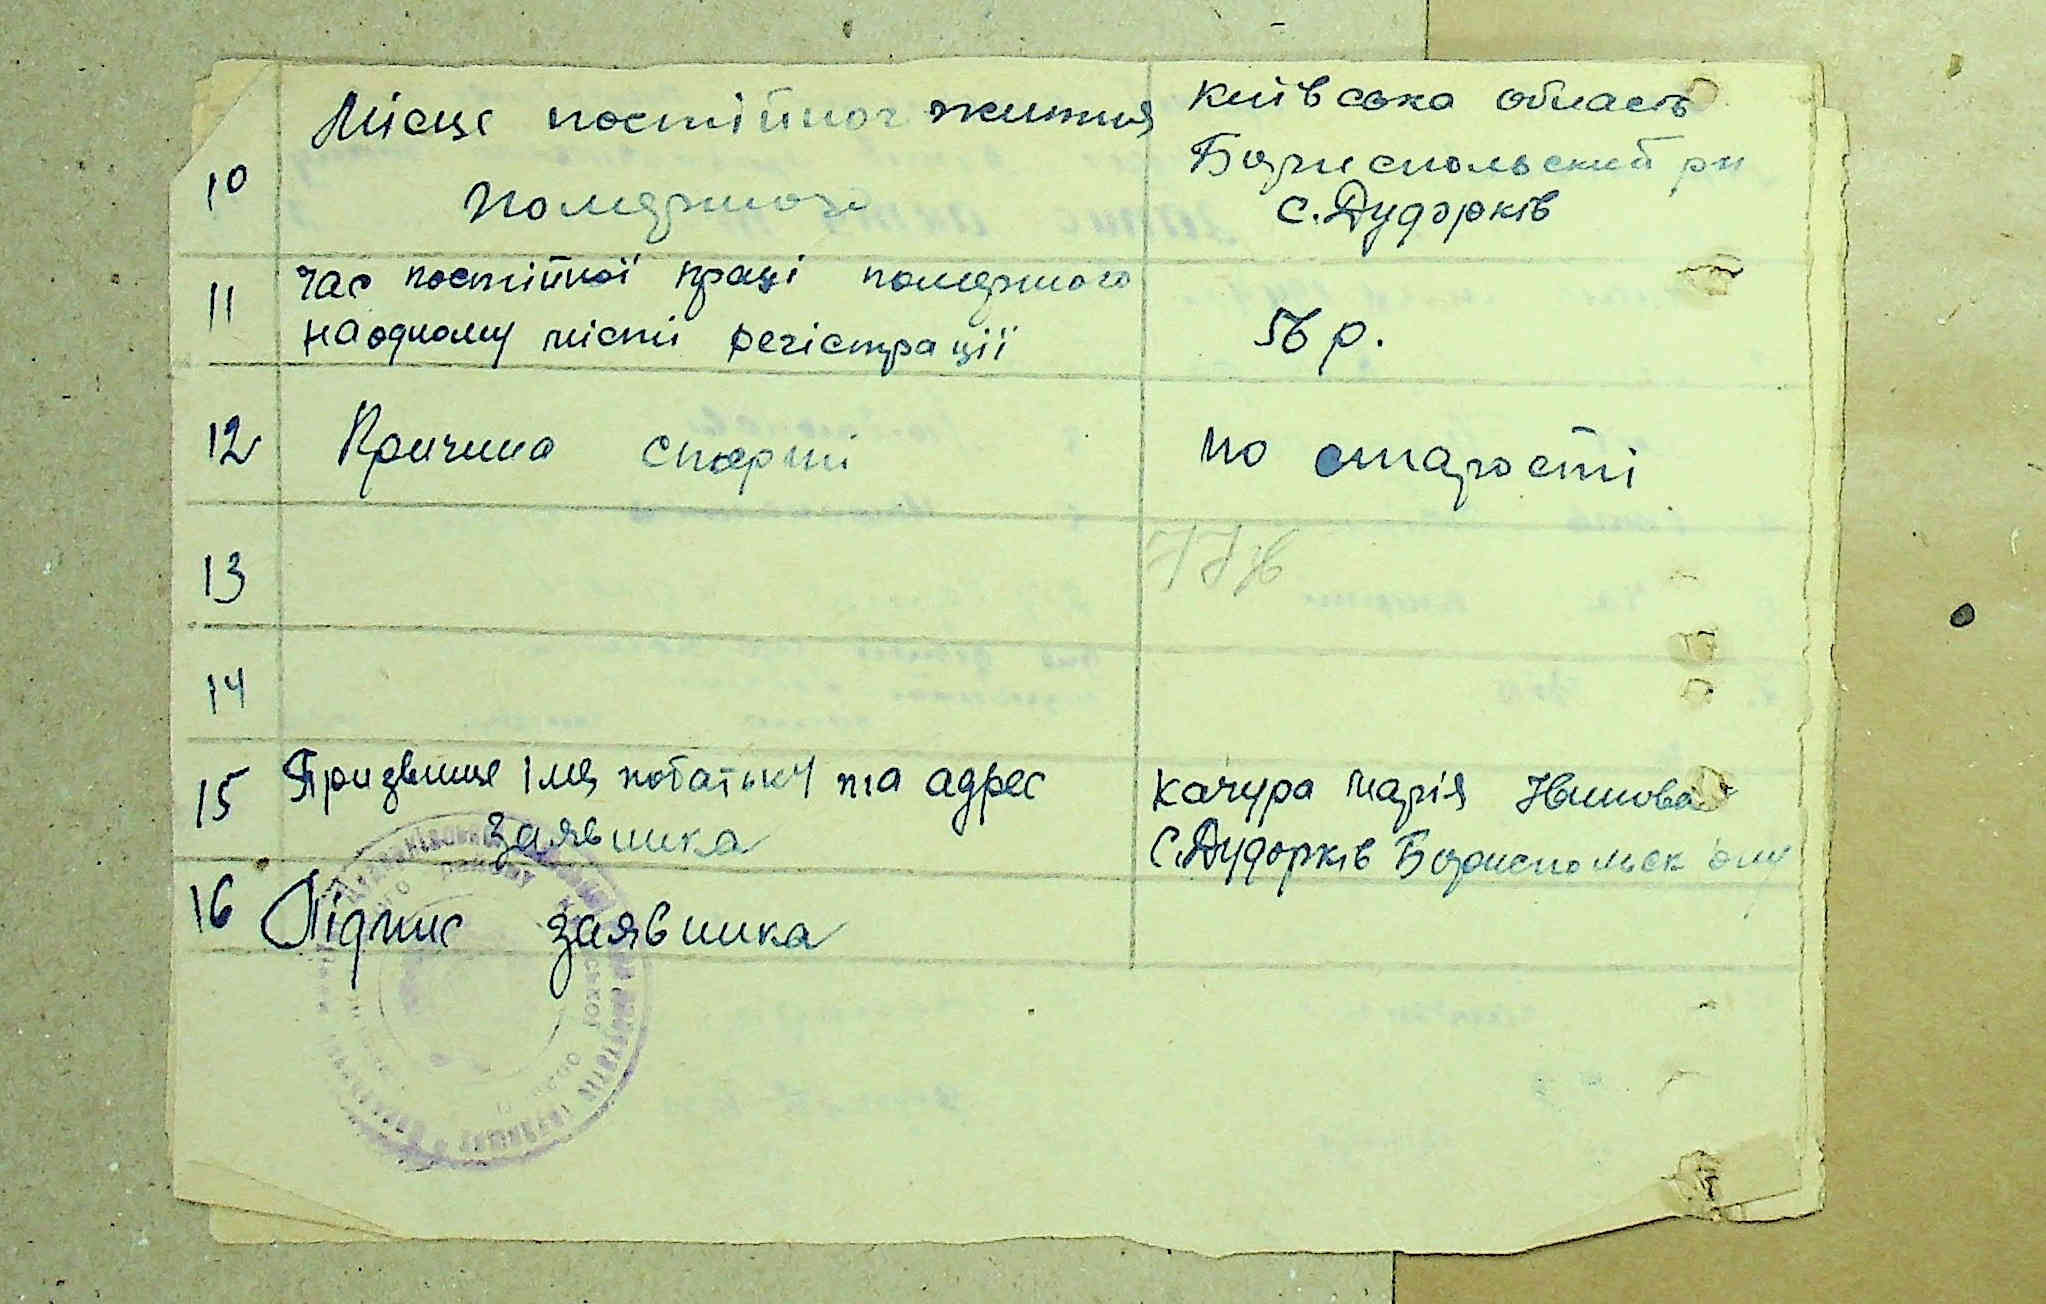 10 Місце постійног життя Київська область
помершого Бориспольский рн
с. Дударків
11 Час постійної праці помершого
на одному місті регістрації 56 р.
12 Причина смерті по старості
13
14
15 Призвище імя побатьку та адрес Качура Марія
заявника с. Дударків Бориспольск
16 Підпис заявника